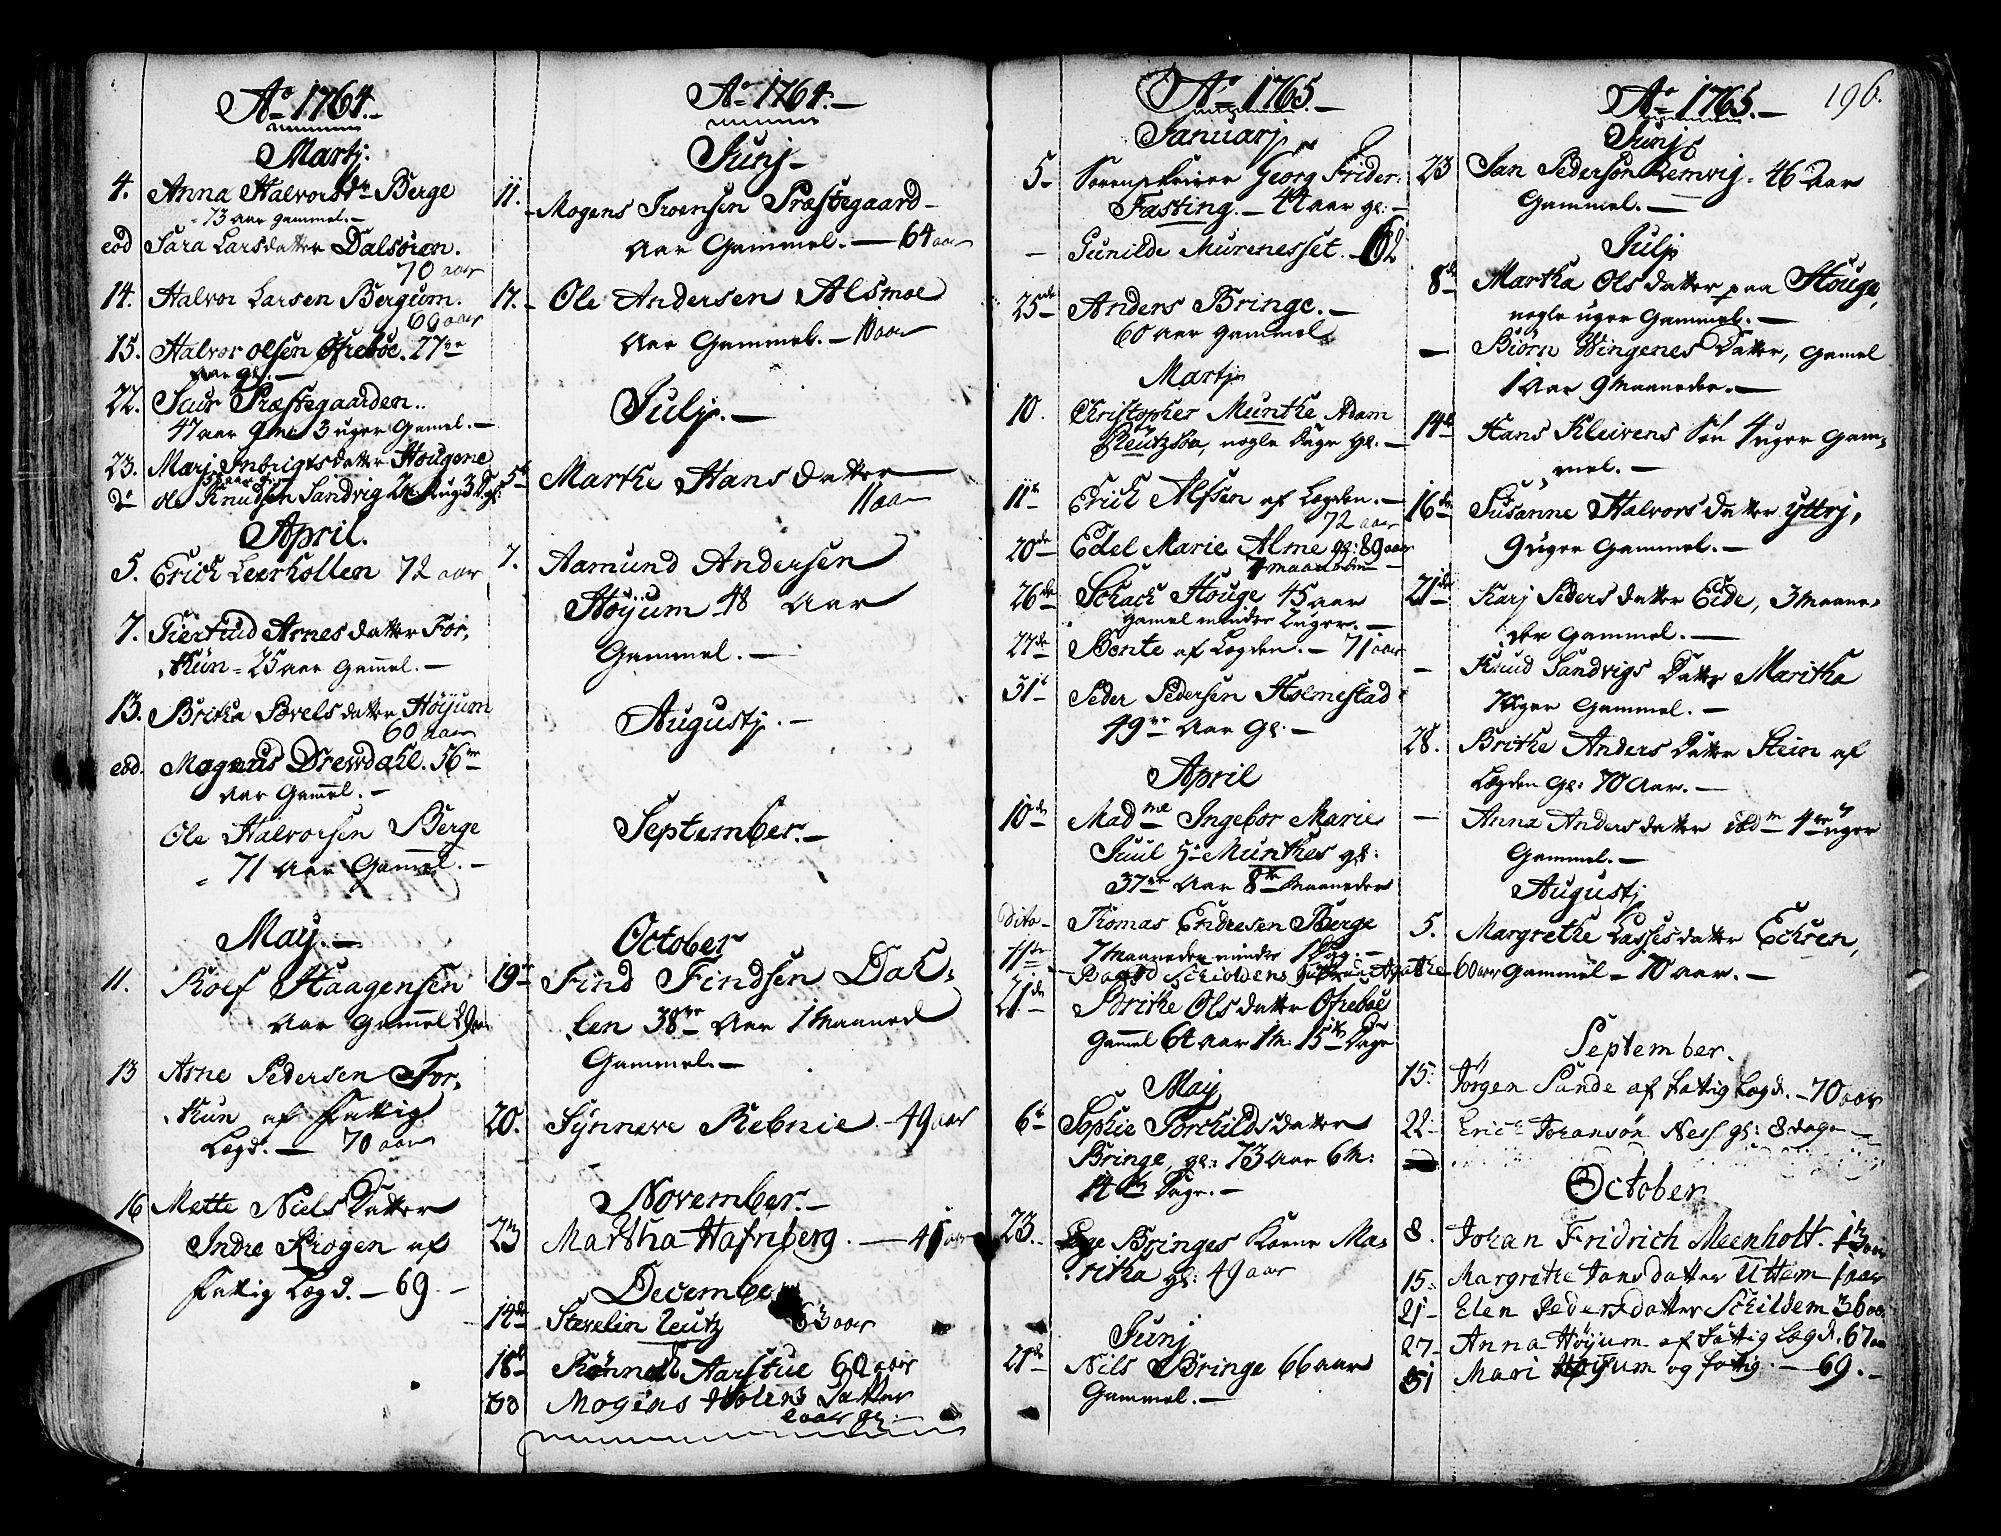 Ao 1764.
Martj.
4. Anna Halvorsdr Berge
73 aar gammel.
eod Sara Larsdatter Dalsören.
70 aar
14. Halvor Larsen Bergum.
60 aar
15. Halvor Olsen Ofreboe. 27
aar gl.
22. Præstegaarden.
47 aar 9 m 3 uger Gamel.
23. Marj datter Hougene
do ole Knudsen Sandvig
April.
5. Erich Leerhollen 72 aar
7. Giertrud Arnesdatter For,
kün - 25 aar Gammel.
13. Britha datter Höÿum
60 aar
eod. Magnus Drewdahl. 56
aar Gammel.
Ole Halvorsen Berge
71 aar Gammel.
May.
11. Rolf Haagensen
aar Gammel
13 Arne Pedersen For,
kün af Fattig
Legd. 70 aar
16 Mette Niels Datter
Indre Krogen af
Fattig Legd. 69.
Ao 1764.
Junj
11. Mogens Præstegaard
aar Gammel. 64 aar
17. Ole Andersen Alsmoe
Aar Gammel.
Julj.
5 Marthe Hansdatter
7. Aamund Andersen
Höÿum 48 Aar
Gammel.
Augustj.
September.
October
19 Find Findsen Dah-
len 38 Aar 1 Maaned
Gammel.
20. Synneve Rebnie 49 aar
November.
23 Martha Hafnberg.
December
14 Stevelin Leutz 63 aar
18 Aarstue 60 aar
30 Mogens Holens Datter
aar gl.
Ao 1765.
Januarj
5 Sorenskriver Georg Frider:
Fasting. 44 aar gl:
Gunilde Murenesset. 62
25de Anders Bringe.
60 aar gammel
Martj
10. Christopher Munthe Adam
Leutzböe, nogle Dage gl.
11 Erich Alfsen af Legden.
72 aar
20de Edel Marie Alme gl: 89 aar
maaneder
26de Schach Houge 45 aar
gamel minder 2 uger.
27de Bente af Legden. 71 aar
31 Peder Pedersen Holmestad
49 Aar Gl.
April
10de Madme Ingebor Marie
Juul Hr Munthes gl:
37 Aar 8 Maaneder
Dito Thomas Endresen Berge
7 Maaneder minder 1 Dag.
60 aar
21de Brithe Olsdatter Ofreboe
Gammel 64 aar 1 M: 15 Dage
May
6 Sophie Torchildsdatter
Bringe, gl: 73 Aar 6 M:
14 Dage.
23. Bringes Kone Ma-
ritha gl: 49 aar
Junj
21de Nils Bringe 66 aar
Gammel.
Ao 1765. 196.
Junj
23 Jan Pederson Remvig 46 Aar
Gammel.
Julj
8de Martha Olsdatter paa Houge,
nogle uger Gammel.
Biörn Wingenes Datter, Gamel
1 Aar 9 Maaneder.
14 Hans Kleivens Sön 4 uger Gam-
mel.
16de Susanne Halvorsdatter Yttrj,
9 uger Gammel.
21de Karj Pedersdatter Eide, 3 Maane-
der Gammel.
Knud Sandvigs Datter Maritha
uger Gammel.
28. Brithe Anders Datter Stein af
Legden Gl: 70 Aar.
Anna Andersdatter 4 uger
Gammel.
Augustj
5. Margrethe Lassesdatter Echren,
Gammel 70 aar.
September.
15. Jörgen Sande af Fattig Legd. 70 aar
22 Erich Johansön Ness gl: 8 dage
October
8. Johan Fridrich Meenholt.
15. Margrethe Jansdatter Uttem 1 aar
21 Elen Pedersdatter Schildem 36 aar
27 Anna Höÿum af Fattig Legd. 67 aar
31 Mari Höÿum og fattig. 69.